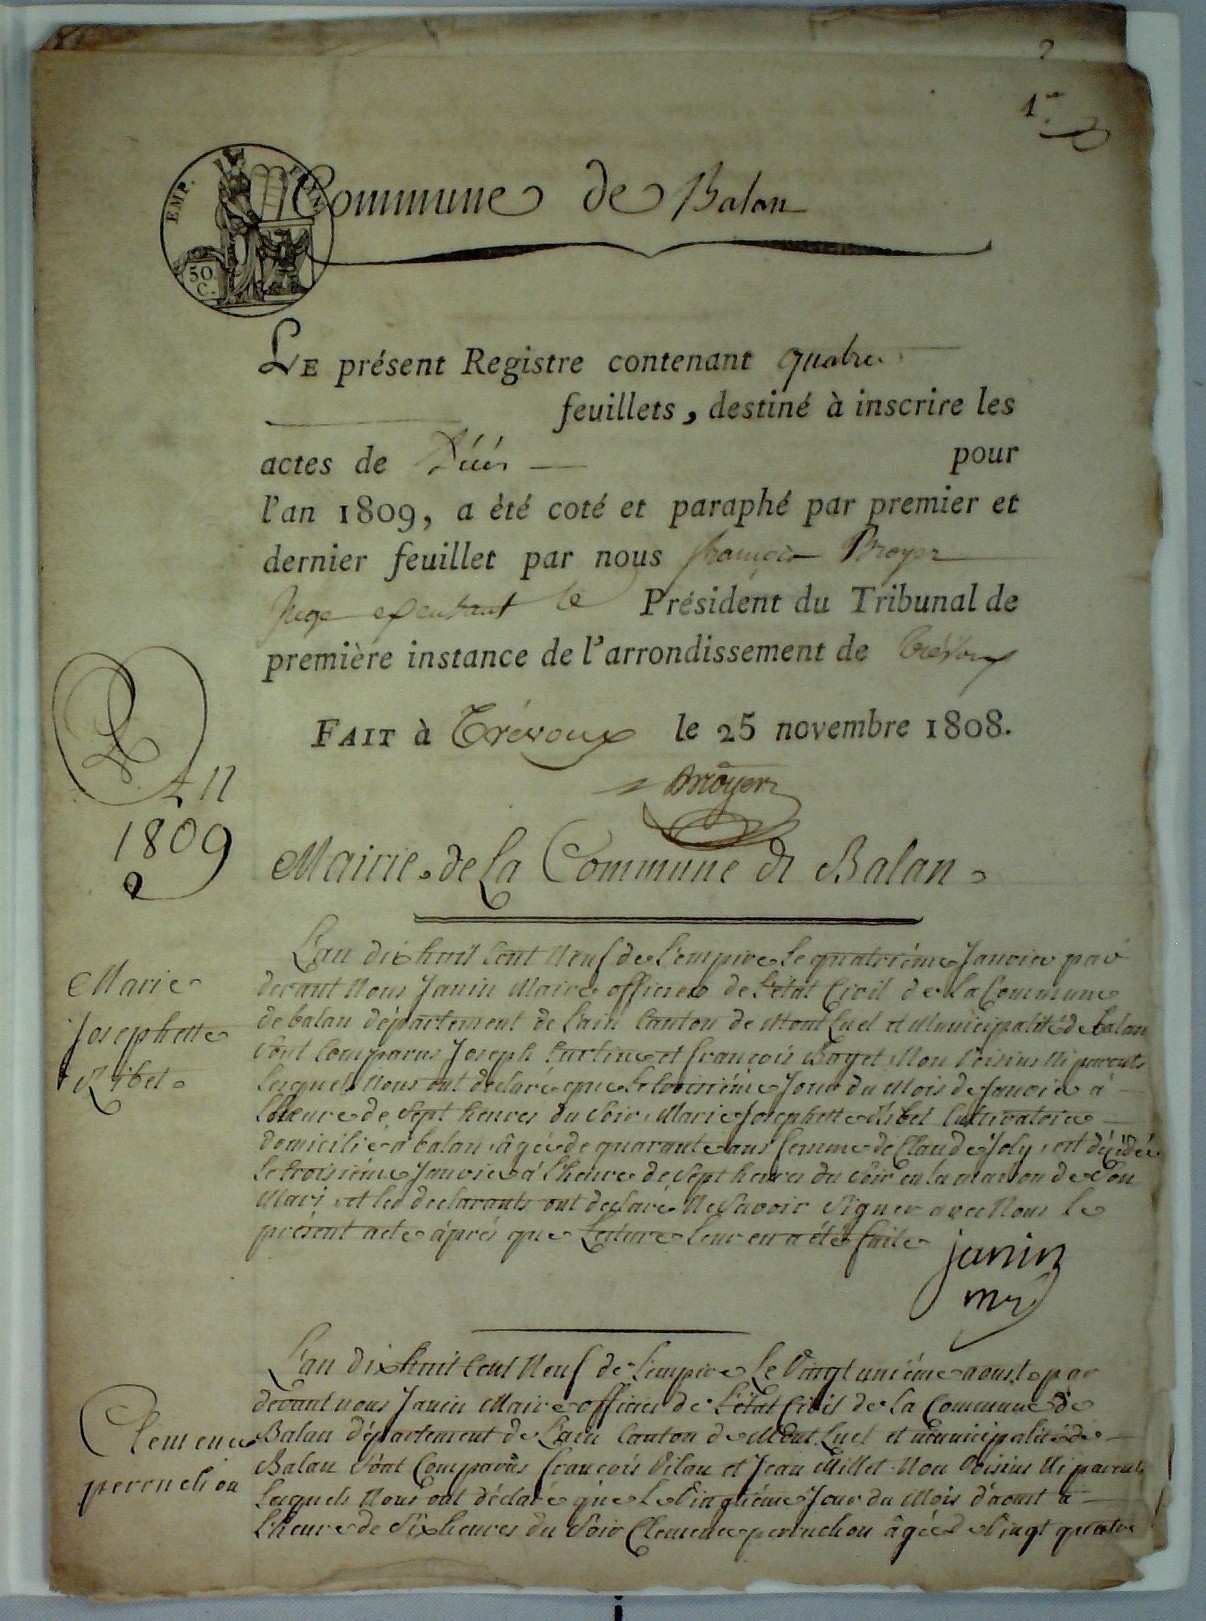 2
1er
EMP.
50
C.
Commune de Balan
LE présent Registre contenant quatre
feuillets, destiné à inscrire les
actes de Décès pour
l'an 1809, a été coté et paraphé par premier et
dernier feuillet par nous françois Broyer
Juge exerçant le Président du Tribunal de
première instance de l'arrondissement de Trévoux
FAIT à Trévoux le 25 novembre 1808.
Broyer
An
1809
Mairie de La Commune de Balan
Marie
Josephette
Ribet
L'an dix huit Cent Neuf de L'empire Le quatriéme Janvier par
devant Nous Janin Maire officier de L'état Civil de La Commune
de balan département de L'ain Canton de Mont Luel et Municipalité de balan
sont Comparus Joseph et françois Non Voisins Ni parents
Lesquels Nous ont déclaré que Le troisiéme Jour du Mois de Janvier à
L'heure de Sept heures du Soir, Marie Josephette Ribet Cultivatrice
domicilié à balan, âgée de quarante ans femme de Claude Joly, est décédée
Le troisiéme Janvier à L'heure de Sept heures du Soir en la maison de Son
Mari, et les declarants ont declaré Ne Savoir Signer avec Nous Le
présent acte àprés que Lecture Leur en a été faite
janin
mre
Clemence
perruchon
L'an dix huit Cent Neuf de L'empire Le Vingt uniéme aoust par
devant nous Janin Maire officier de L'état Civil de La Commune de
Balan département de L'ain Canton de Mont Luel et municipalité de
Balan Sont Comparus françois Pilan et Jean Millet Non Voisins Ni parents
Lesquels Nous ont déclaré que Le Vingtiéme Jour du Mois d'aoust à
L'heure de Six heures du Soir Clemence perruchon âgée de Vingt quatre